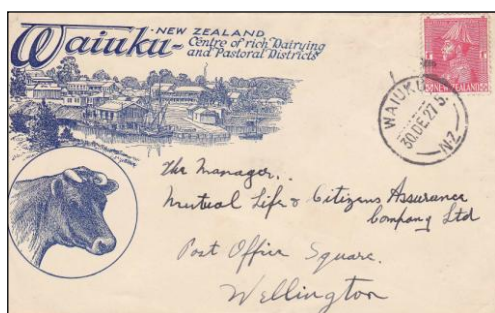 Waiuku -
NEW ZEALAND
Centre of rich Dairying
and Pastoral Districts
NEW ZEALAND
WAIUKU
30 DE 27 5
N.Z.
The Manager..
Mutual Life & Citizens Assurance
Company Ltd
Post Office Square.
Wellington